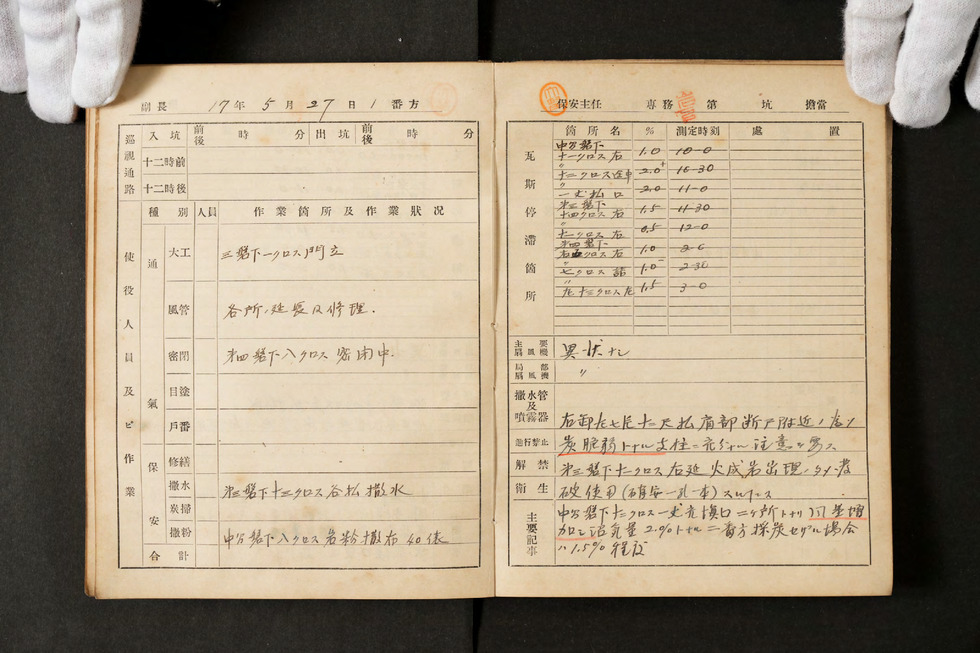 副長 17年5月27日1番方
巡視通路
入坑 前後 時 分 出坑 前後 時 分
十二時前
十二時後
種別 人員 作業箇所及作業狀況
使役人員及ビ作業
通氣保安
大工 三盤下一クロス門立
風管 各所ノ延長及修理.
密閉 第四盤下八クロス 密閉中.
目塗
戶番
修繕
撒水 第三盤下十三クロス谷払撒水
炭掃
撒粉 中分盤下八クロス岩粉撒布 40俵
合計
保安主任 専務 第 坑 擔當
瓦斯停滯箇所
箇所名 % 測定時刻 處置
中分盤下
十一クロス右 1.0 10-0
〃
十二クロス 2.0+ 10-30
〃
払口 2.0 11-0
第三盤下
十四クロス右 1.5 11-30
〃
十クロス右 0.5 12-0
第四盤下
クロス右 1.0
〃
七クロス詰 1.0- 2-30
〃
左十三クロス左 1.5 3-0
主要扇風機 異状ナシ
局部扇風機 〃
撒水管及噴霧器
進行禁止
解禁
衛生
右卸左七尺十二尺払肩部断戸附近ノ
炭脆弱トナル支柱ニ充分ナル注意ヲ要ス
第三盤下十一クロス右延 火成岩出現ノタメ発
破使用(硝安一孔一本)
主要記事
中分盤下十二クロス 充填口ニケ所トナリ 風量増
加シ 2.0%トナル 採炭セザル場合
ハ1.5%程度